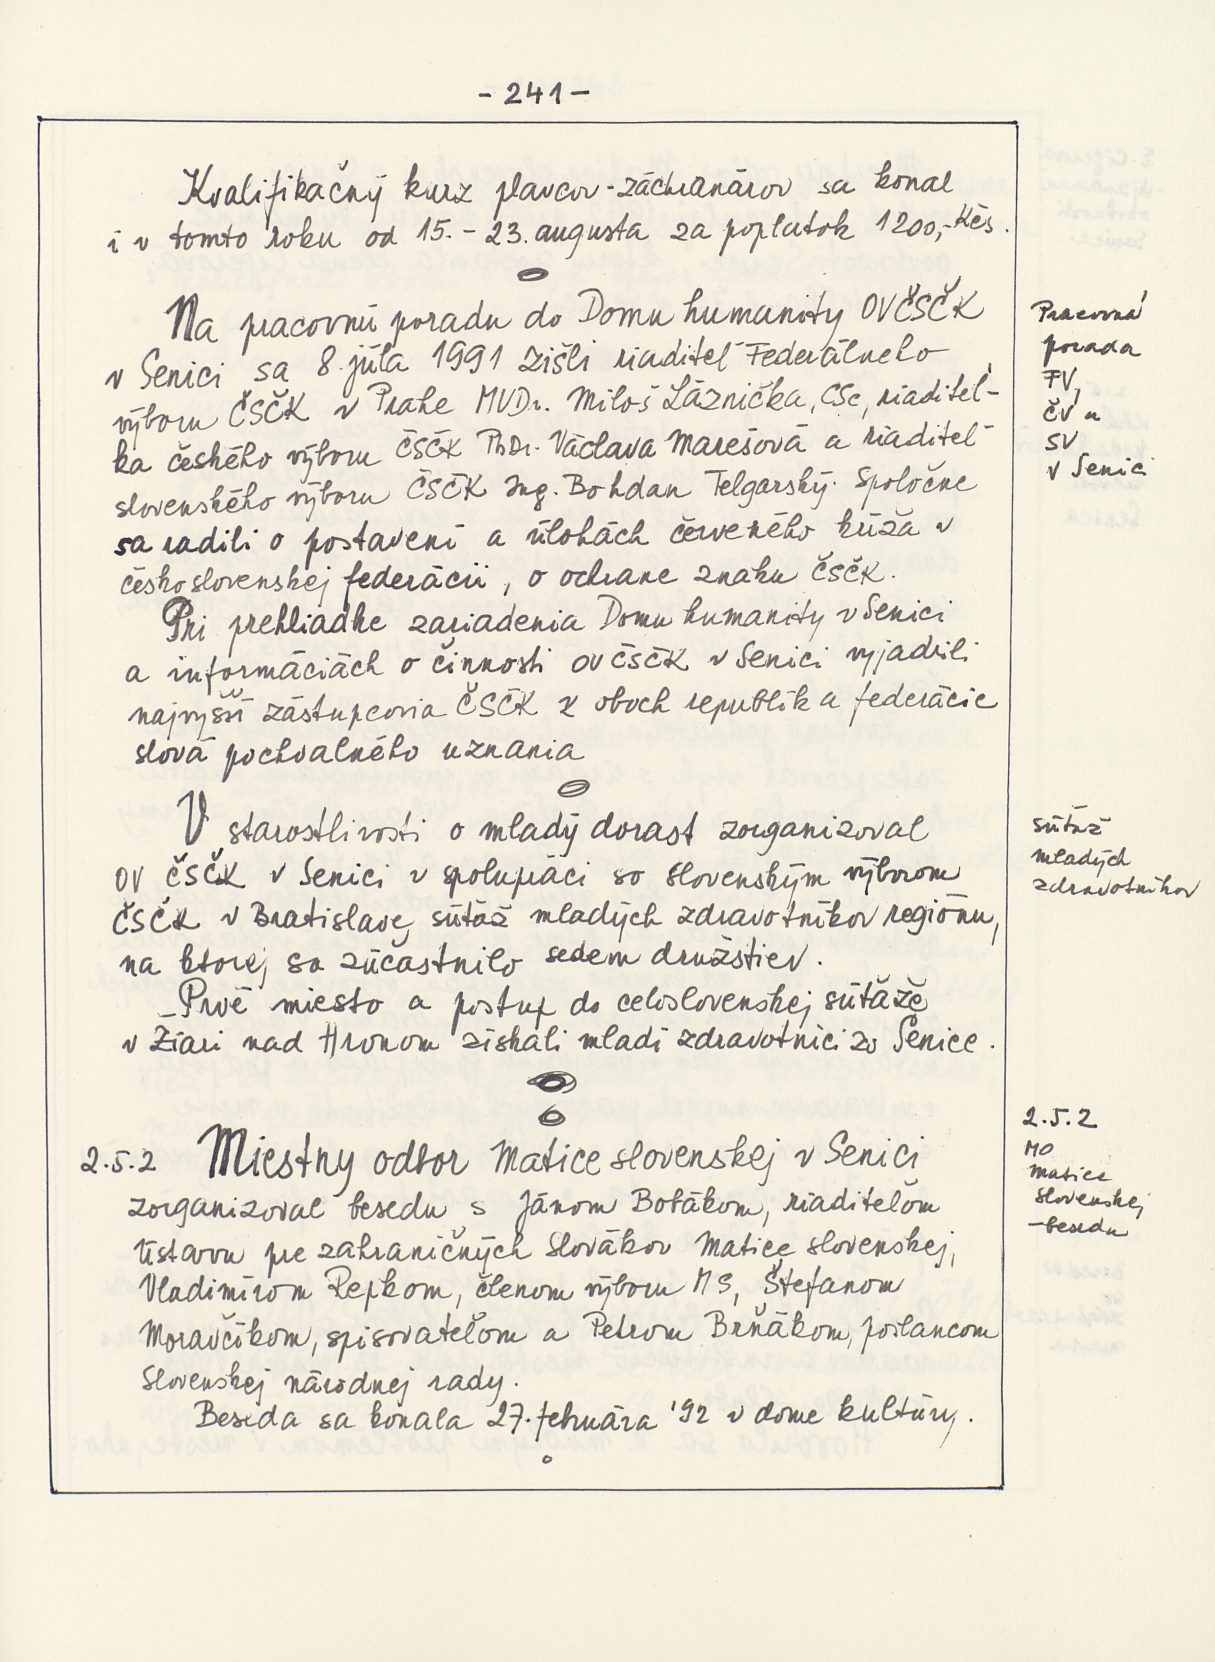 - 241 -
Kvalifikačný kurz plavcov-záchranárov sa konal
i v tomto roku od 15. - 23. augusta za poplatok 1200,- Kčs.
Na pracovnú poradu do Domu humanity OVČSČK
v Senici sa 8. júla 1991 zišli riaditeľ Federálneho
výboru ČSČK v Prahe MVDr. Miloš Láznička, CSc, riaditeľ-
ka českého výboru ČSČK PhDr. Václava Marešová a riaditeľ
slovenského výboru ČSČK Ing. Bohdan Telgarský. Spoločne
sa radili o postavení a úlohách červeného kríža v
česko slovenskej federácii, o ochrane znaku ČSČK.
Pri prehliadke zariadenia Domu humanity v Senici
a informáciách o činnosti OV ČSČK v Senici vyjadrili
najvyšší zástupcovia ČSČK z oboch republík a federácie
slová pochvalného uznania
V starostlivosti o mladý dorast zorganizoval
OV ČSČK v Senici v spolupráci so slovenským výborom
ČSČK v Bratislave súťaž mladých zdravotníkov regiónu,
na ktorej sa zúčastnilo sedem družstiev.
Prvé miesto a postup do celoslovenskej súťaže
v Žiari nad Hronom získali mladí zdravotníci zo Senice.
2.5.2 Miestny odbor Matice slovenskej v Senici
zorganizoval besedu s Jánom Bobákom, riaditeľom
Ústavu pre zahraničných Slovákov Matice slovenskej,
Vladimírom Repkom, členom výboru MS, Štefanom
Moravčíkom, spisovateľom a Petrom Brňákom, poslancom
Slovenskej národnej rady.
Beseda sa konala 27. februára '92 v dome kultúry.
Pracovná
porada
FV,
ČV a
SV
v Senici
súťaž
mladých
zdravotníkov
2.5.2
MO
Matice
slovenskej
-beseda